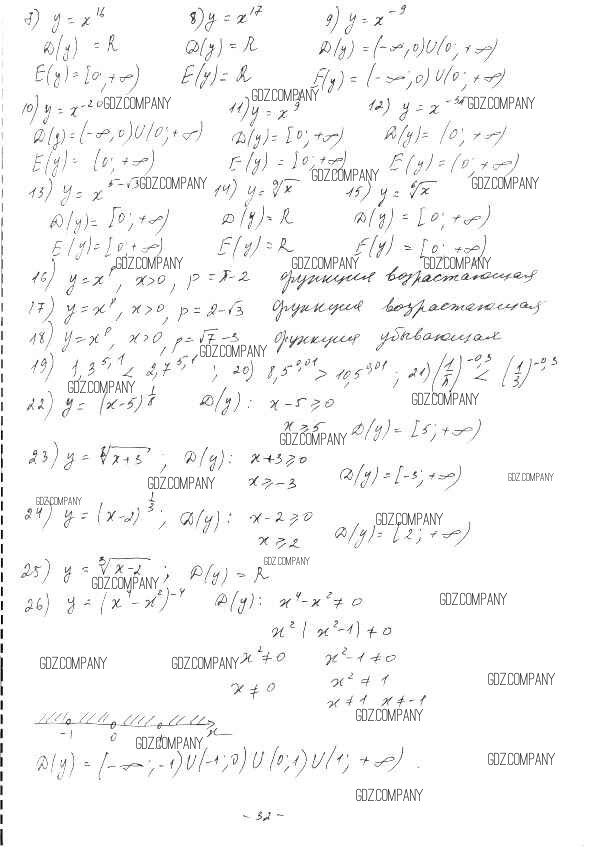 7) y = x^16 8) y = x^17 9) y = x^-9
D(y) = R D(y) = R D(y) = (-∞,0)U(0; +∞)
E(y) = [0; +∞) E(y) = R E(y) = (-∞; 0)U(0; +∞)
GDZ.COMPANY
10) y = x^-20 GDZ.COMPANY 11) y = x^9 12) y = x^-3π GDZ.COMPANY
D(y) = (-∞,0)U(0; +∞) D(y) = [0; +∞) D(y) = (0; +∞)
E(y) = (0; +∞) E(y) = [0; +∞) E(y) = (0; +∞)
GDZ.COMPANY
13) y = x^5-√3 GDZ.COMPANY 14) y = ⁹√x 15) y = ⁶√x GDZ.COMPANY
D(y) = [0; +∞) D(y) = R D(y) = [0; +∞)
E(y) = [0; +∞) E(y) = R E(y) = [0; +∞)
GDZ.COMPANY GDZ.COMPANY GDZ.COMPANY
16) y = x^p, x>0, p = π-2 функция возрастающая
17) y = x^p, x>0, p = 2-√3 функция возрастающая
18) y = x^p, x>0, p = √7-3 функция убывающая
GDZ.COMPANY
19) 1,3^5,1 < 2,7^5,1; 20) 8,5^0,01 > 10,5^0,01; 21) (1/π)^-0,3 < (1/3)^-0,3
GDZ.COMPANY
22) y = (x-5)^1/8 D(y): x-5 ≥ 0 GDZ.COMPANY
x ≥ 5 D(y) = [5; +∞)
GDZ.COMPANY
23) y = ⁸√x+3; D(y): x+3 ≥ 0
GDZ.COMPANY x ≥ -3 D(y) = [-3; +∞) GDZ.COMPANY
GDZ.COMPANY
24) y = (x-2)^1/3; D(y): x-2 ≥ 0 GDZ.COMPANY
x ≥ 2 D(y) = [2; +∞)
GDZ.COMPANY
25) y = ³√x-2; D(y) = R
GDZ.COMPANY
26) y = (x^4 - x^2)^-4 D(y): x^4 - x^2 ≠ 0 GDZ.COMPANY
x^2(x^2-1) ≠ 0
GDZ.COMPANY GDZ.COMPANY x^2 ≠ 0 x^2-1 ≠ 0
x ≠ 0 x^2 ≠ 1 GDZ.COMPANY
x ≠ 1 x ≠ -1
GDZ.COMPANY
-1 0 1 x
GDZ.COMPANY
D(y) = (-∞; -1)U(-1; 0)U(0; 1)U(1; +∞). GDZ.COMPANY
GDZ.COMPANY
- 32 -